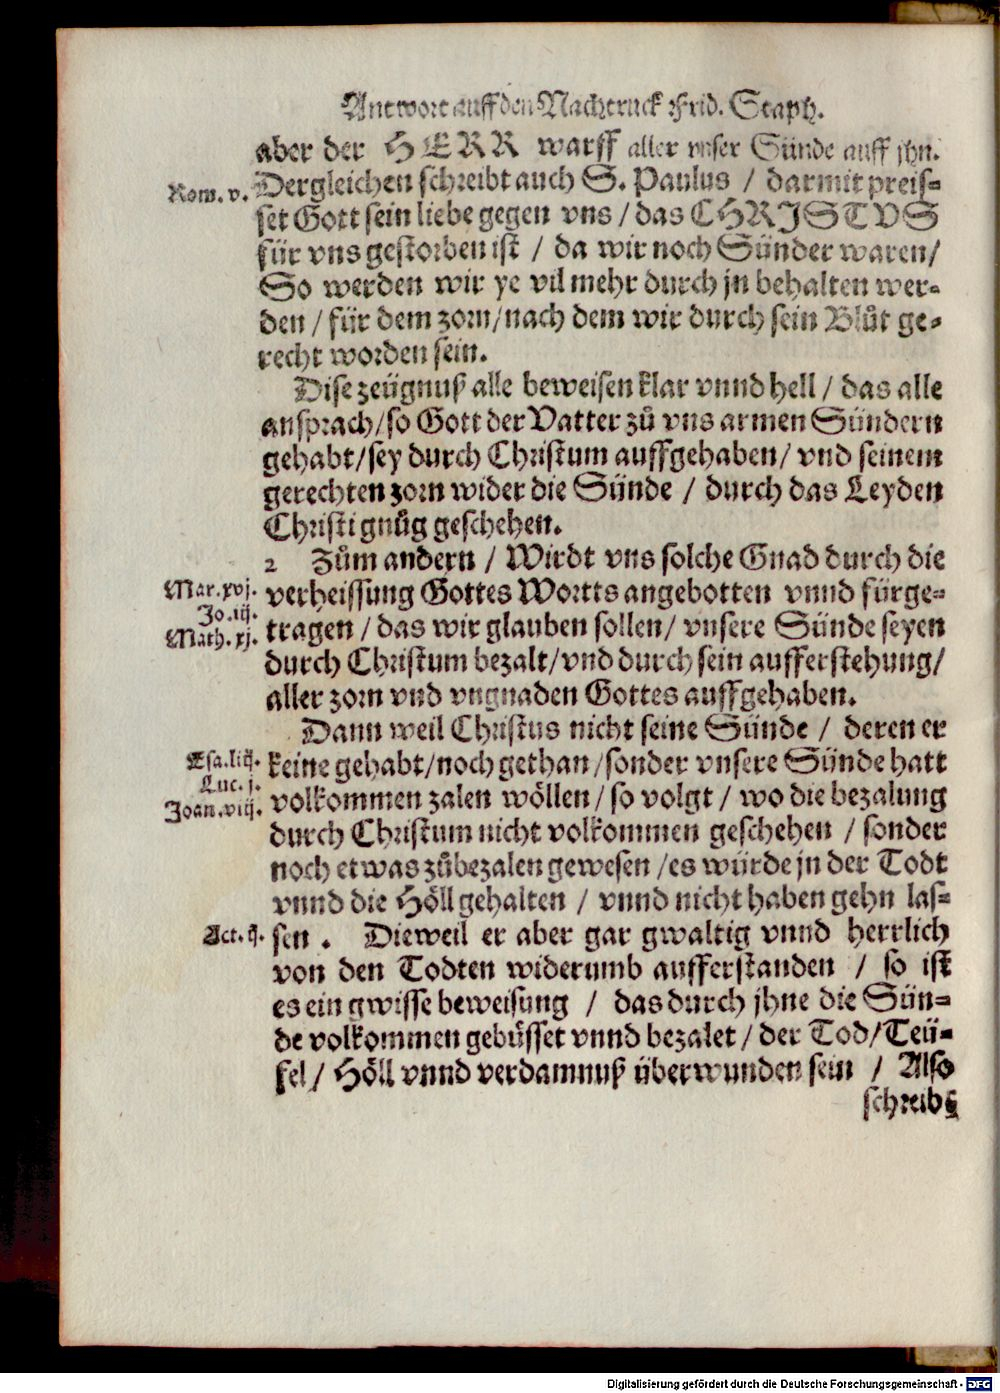 Antwort auff den Nachtruck Frid. Staph.
aber der HERR warff aller vnser Sünde auff jhn.
Rom. v.
Dergleichen schreibt auch S. Paulus / darmit preis-
set Gott sein liebe gegen vns / das CHRISTVS
für vns gestorben ist / da wir noch Sünder waren /
So werden wir ye vil mehr durch jn behalten wer-
den / für dem zorn / nach dem wir durch sein Blůt ge-
recht worden sein.
Dise zeügnuß alle beweisen klar vnnd hell / das alle
ansprach / so Gott der Vatter zů vns armen Sündern
gehabt / sey durch Christum auffgehaben / vnd seinem
gerechten zorn wider die Sünde / durch das Leyden
Christi gnůg geschehen.
2 Zům andern / Wirdt vns solche Gnad durch die
Mar. xvj.
verheissung Gottes Wortts angebotten vnnd fürge-
Jo. iij.
Math. xj.
tragen / das wir glauben sollen / vnsere Sünde seyen
durch Christum bezalt / vnd durch sein aufferstehung /
aller zorn vnd vngnaden Gottes auffgehaben.
Dann weil Christus nicht seine Sünde / deren er
Esa. liij.
keine gehabt / noch gethan / sonder vnsere Sünde hatt
Luc. j.
Joan. viij.
volkommen zalen wöllen / so volgt / wo die bezalung
durch Christum nicht volkommen geschehen / sonder
noch etwas zůbezalen gewesen / es würde jn der Todt
vnnd die Höll gehalten / vnnd nicht haben gehn las-
Act. ij.
sen . Dieweil er aber gar gwaltig vnnd herrlich
von den Todten widerumb aufferstanden / so ist
es ein gwisse beweisung / das durch jhne die Sün-
de volkommen gebüsset vnnd bezalet / der Tod / Teü-
fel / Höll vnnd verdamnuß überwunden sein / Also
schreibt
Digitalisierung gefördert durch die Deutsche Forschungsgemeinschaft - DFG